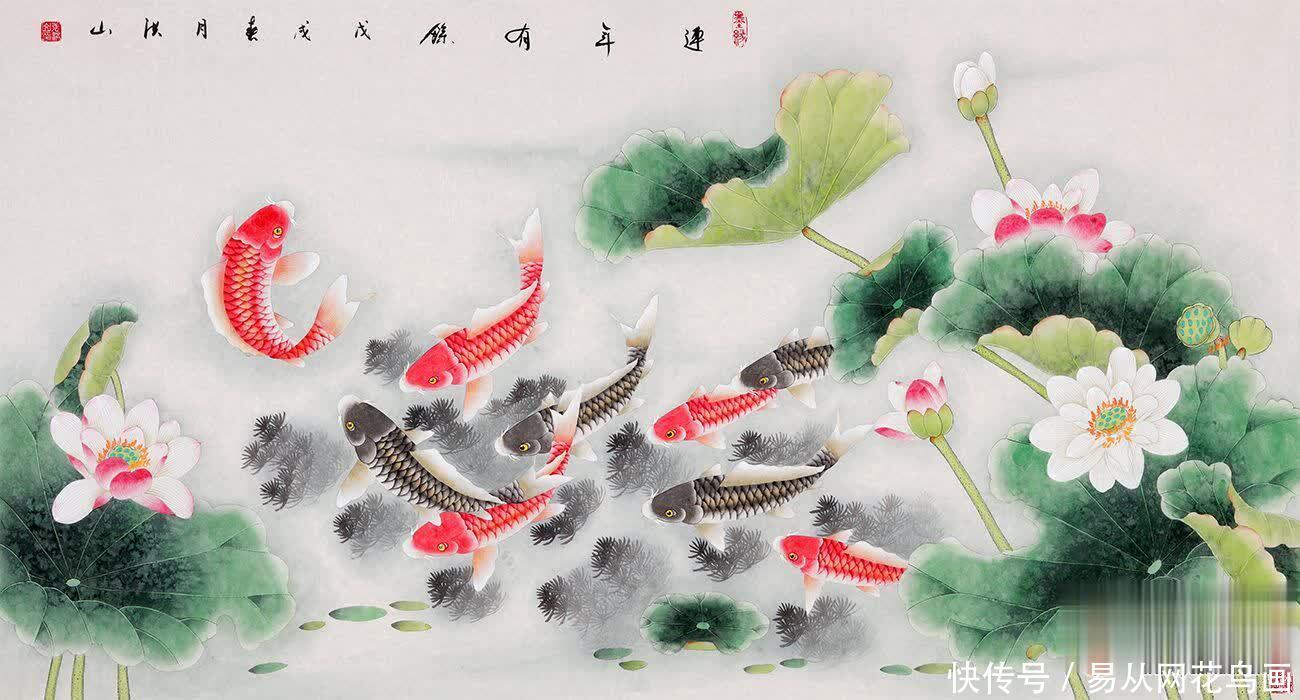 連年有餘 戊戌春月 洪山
快传号 / 易从网花鸟画